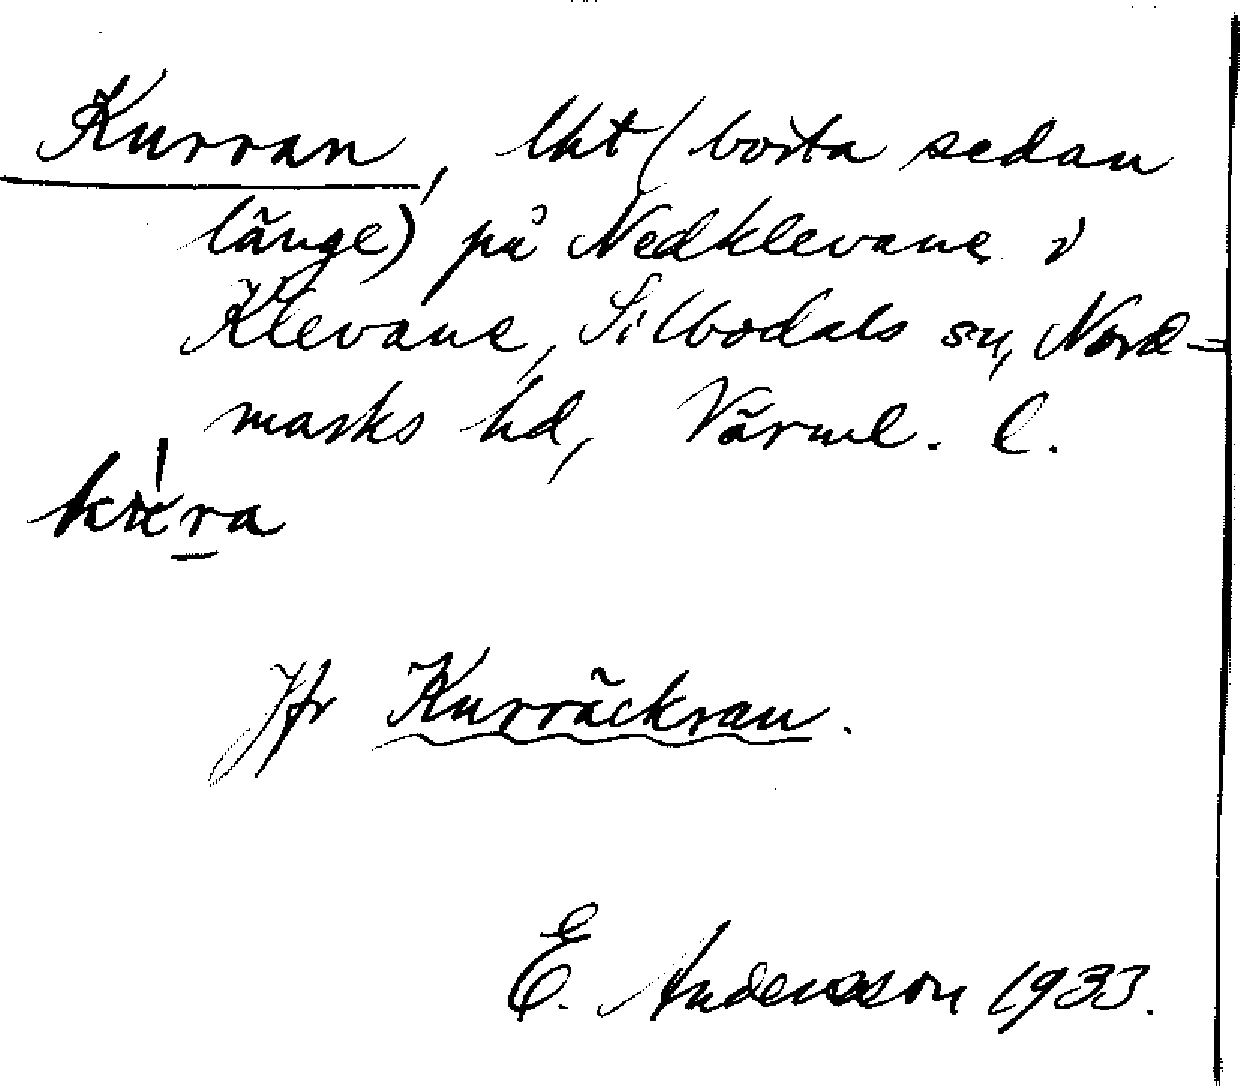 Kurran, lht (borta sedan
länge) på Nedklevane i
Klevane, Silbodals sn, Nord=
marks hd, Värml. l.
Jfr Kurråckran.
E. Andersson 1933.